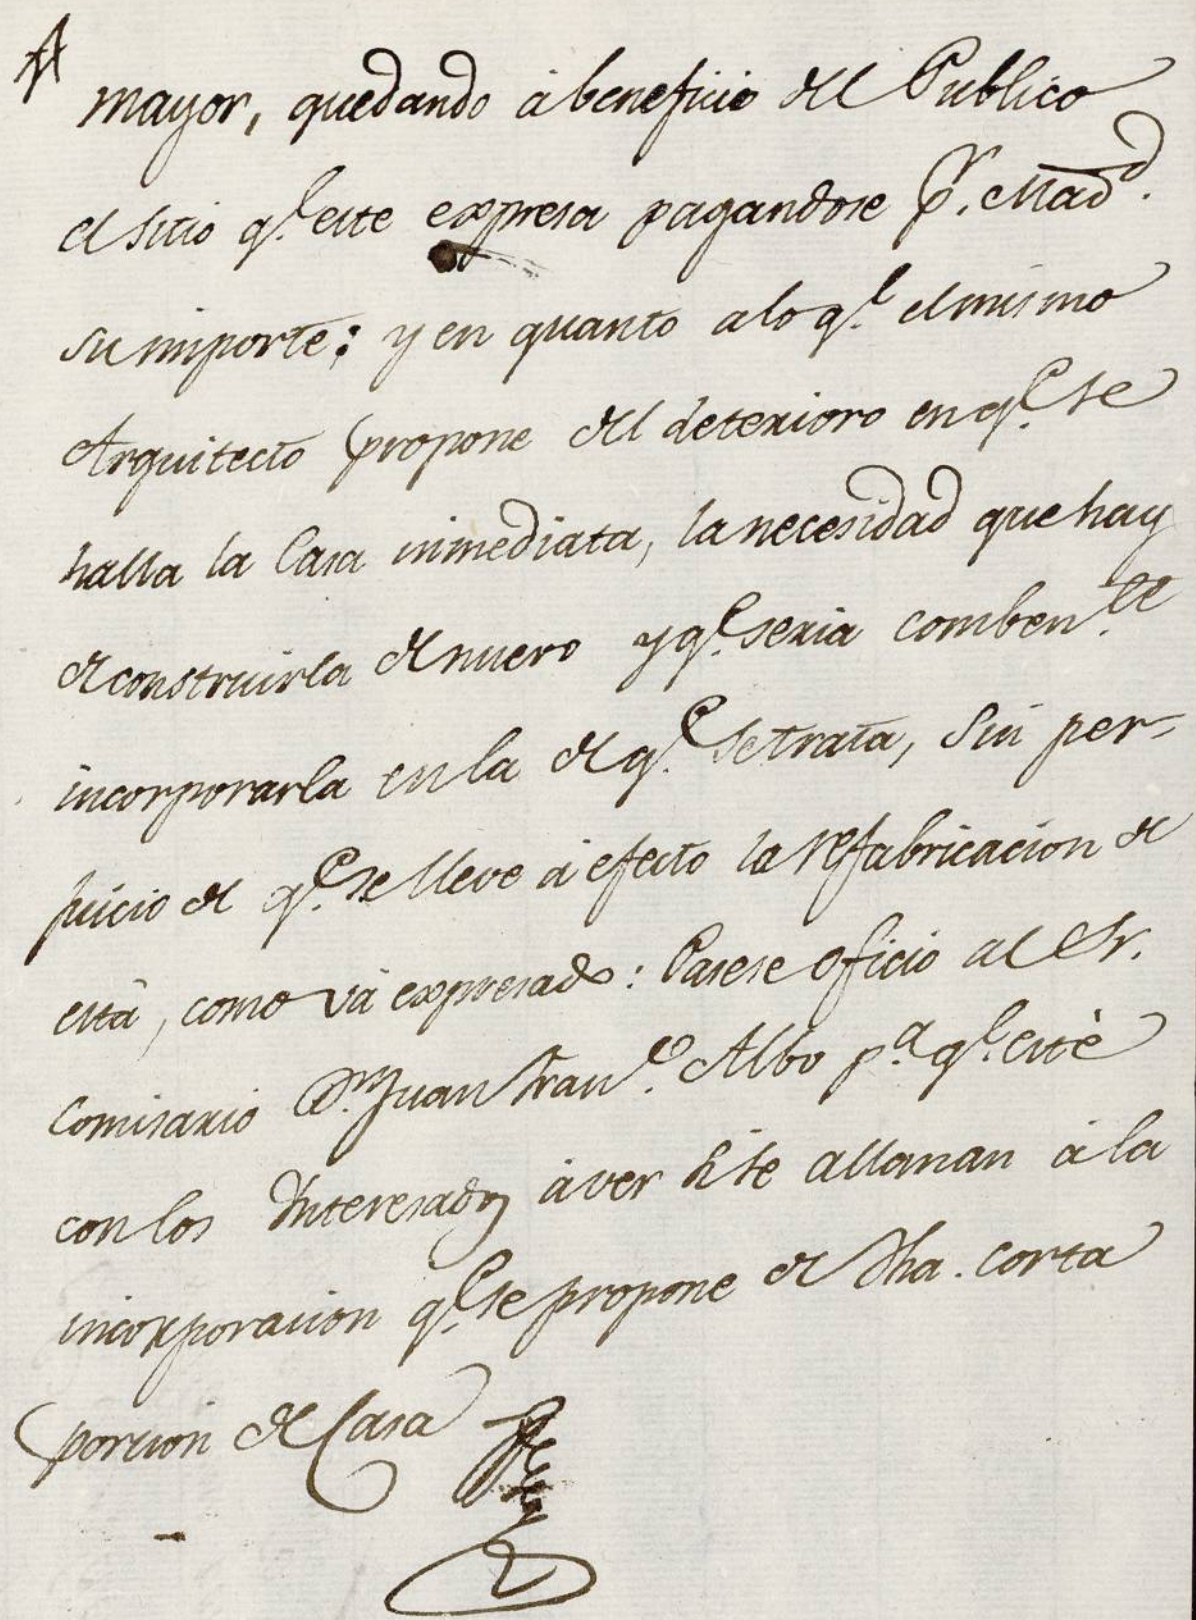 mayor, quedando á beneficio del Publico
el sitio q.e este expresa pagandose p.r Mad.d
su importe; y en quanto a lo q.e el mismo
Arquitecto propone del deterioro en q.e se
halla la Casa inmediata, la necesidad que hay
de construirla de nuevo y q.e seria comben.te
incorporarla en la de q.e se trata, sin per-
juicio de q.e se lleve á efecto la refabricacion de
esta, como vá expresado: Pasese oficio al Sr.
Comisario D.n Juan Fran.co Albo p.a q.e esté
con los Interesados á ver si se allanan á la
incorporacion q.e se propone de dha. corta
porcion de Casa